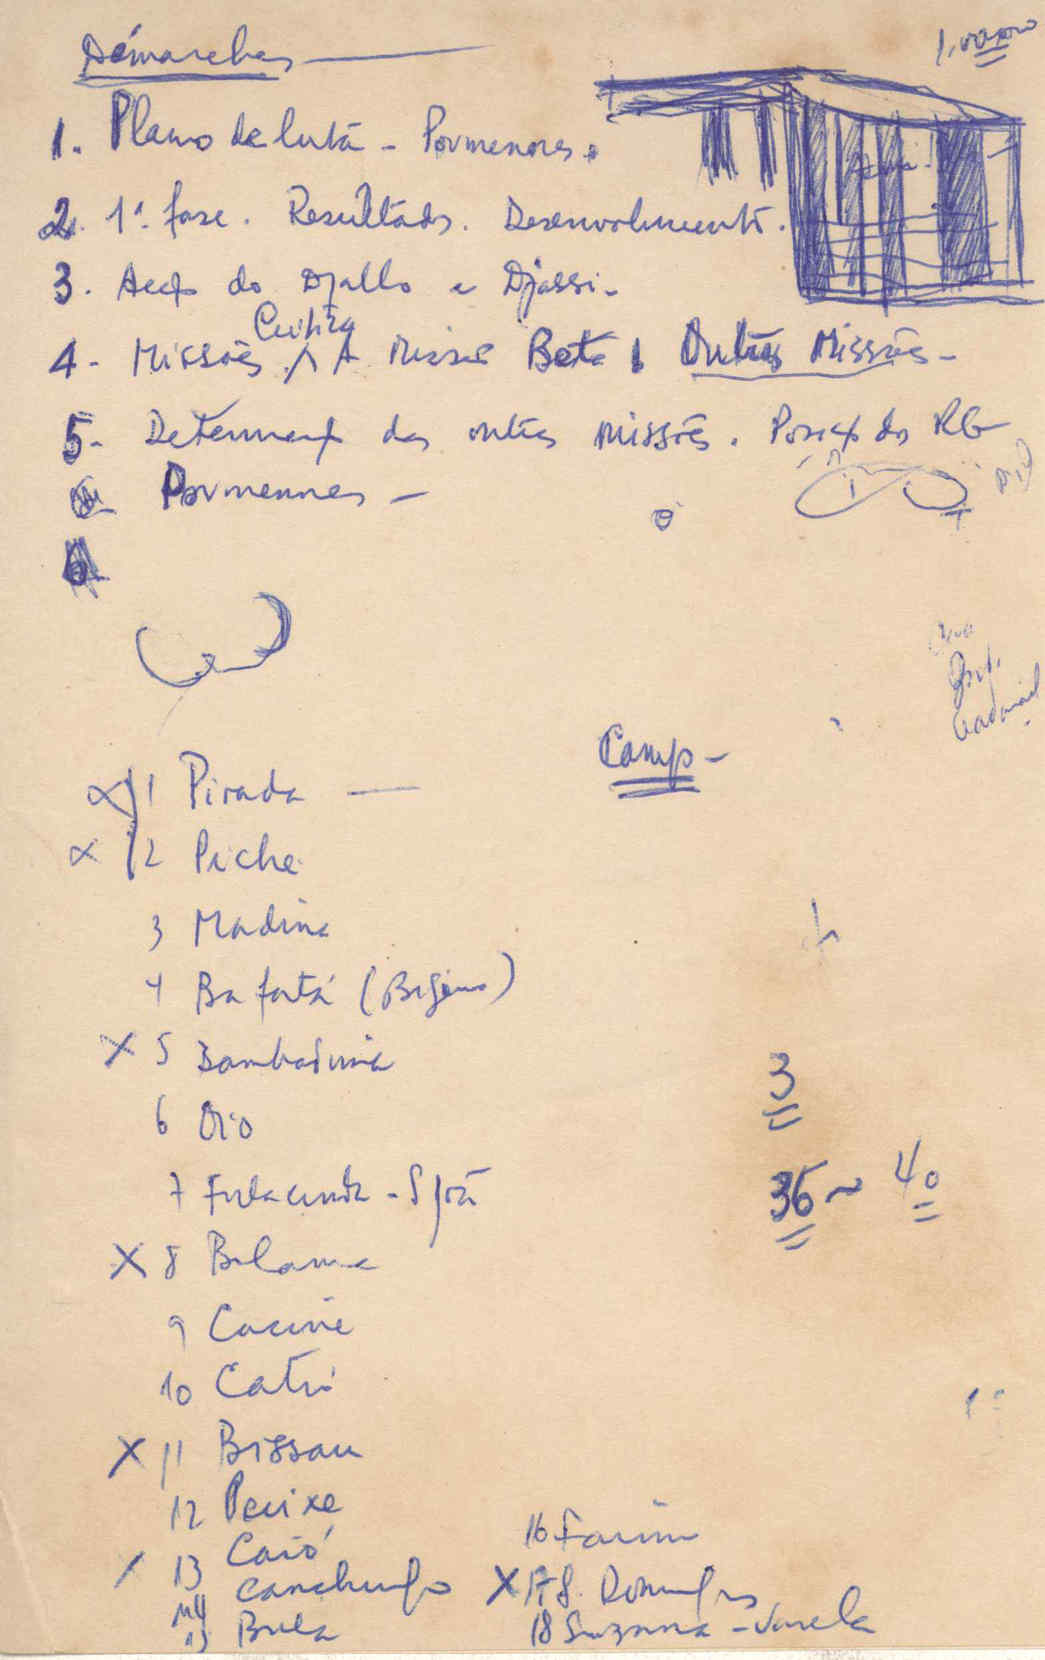 Démarches
1. Plano de luta - Pormenores.
2. 1ª fase. Resultados. Desenvolvimento.
3. Acç do Djallo e Djassi.
4. Missões A Missão Beta Outras Missões -
5. Determinaç das outras missões. Posiç do RG
Pormenores -
6
Camp -
1 Pirada
2 Piche
3 Madina
4 Bafatá
X 5 Bambadinca
6 Oio
7 Fulacunda - S João
X 8 Bolama
9 Cacine
10 Catió
X 11 Bissau
12 Pecixe
13 Caió
14 Canchungo
15 Bula
16 Farim
X 17 S. Domingos
18 Suzana - Varela
3
36 ~ 40